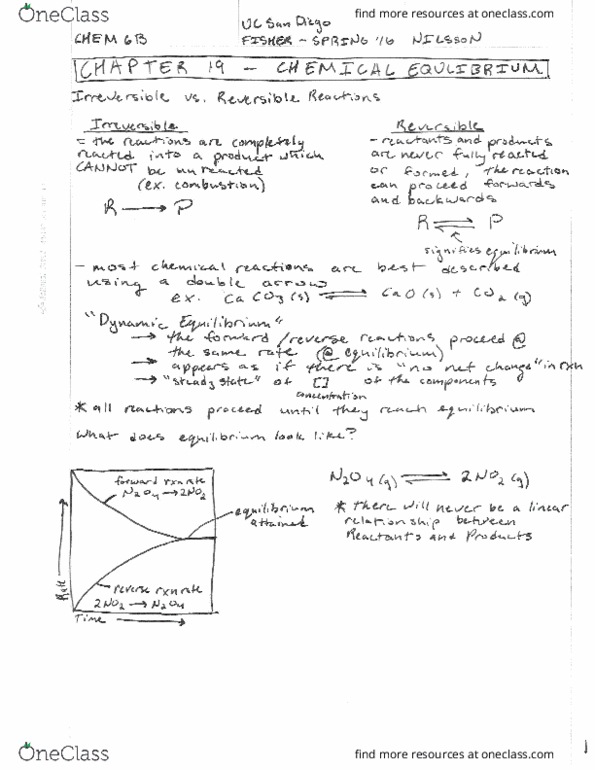 OneClass
find more resources at oneclass.com
CHEM 6B
UC San Diego
FISHER - SPRING '16 NILSSON
CHAPTER 19 - CHEMICAL EQULIBRIUM
Irreversible vs. Reversible Reactions
Irreversible
= the reactions are completely
reacted into a product which
CANNOT be unreacted
(ex. combustion)
R → P
Reversible
- reactants and products
are never fully reacted
or formed, the reaction
can proceed forwards
and backwards
R ⇌ P
signifies equilibrium
- most chemical reactions are best described
using a double arrow
ex. CaCO3(s) ⇌ CaO(s) + CO2(g)
"Dynamic Equilibrium"
→ the forward/reverse reactions proceed @
the same rate (@ equilibrium)
→ appears as if there is "no net change" in rxn
→ "steady state" of [] of the components
concentration
* all reactions proceed until they reach equilibrium
What does equilibrium look like?
forward rxn rate
N2O4 → 2NO2
equilibrium
attained
reverse rxn rate
2NO2 → N2O4
Rate
Time
N2O4(g) ⇌ 2NO2(g)
* there will never be a linear
relationship between
Reactants and Products
1
OneClass
find more resources at oneclass.com